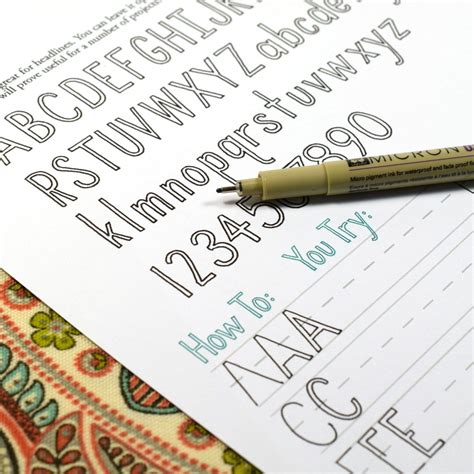 great for headlines. You can leave it
will prove useful for a number of project
ABCDEFGHIJK
RSTUVWXYZ abcdefghij
klmnopqrstuvwxyz
1234567890
MICRON
Micro pigment ink for waterproof and fade proof
How To: You Try:
AAA
CC